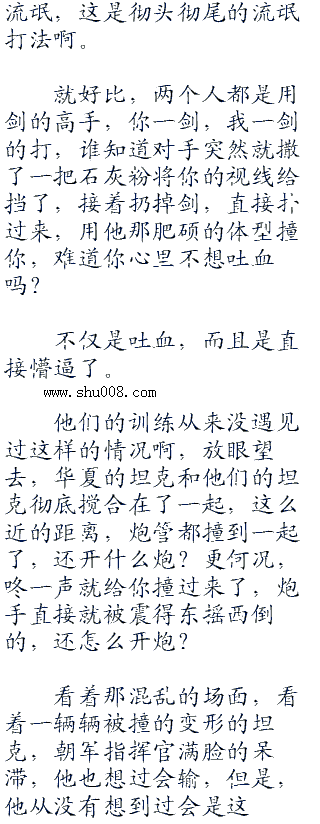 流氓，这是彻头彻尾的流氓
打法啊。
就好比，两个人都是用
剑的高手，你一剑，我一剑
的打，谁知道对手突然就撒
了一把石灰粉将你的视线给
挡了，接着扔掉剑，直接扑
过来，用他那肥硕的体型撞
你，难道你心里不想吐血
吗？
不仅是吐血，而且是直
接懵逼了。
www.shu008.com
他们的训练从来没遇见
过这样的情况啊，放眼望
去，华夏的坦克和他们的坦
克彻底搅合在了一起，这么
近的距离，炮管都撞到一起
了，还开什么炮？更何况，
咚一声就给你撞过来了，炮
手直接就被震得东摇西倒
的，还怎么开炮？
看着那混乱的场面，看
着一辆辆被撞的变形的坦
克，朝军指挥官满脸的呆
滞，他也想过会输，但是，
他从没有想到过会是这